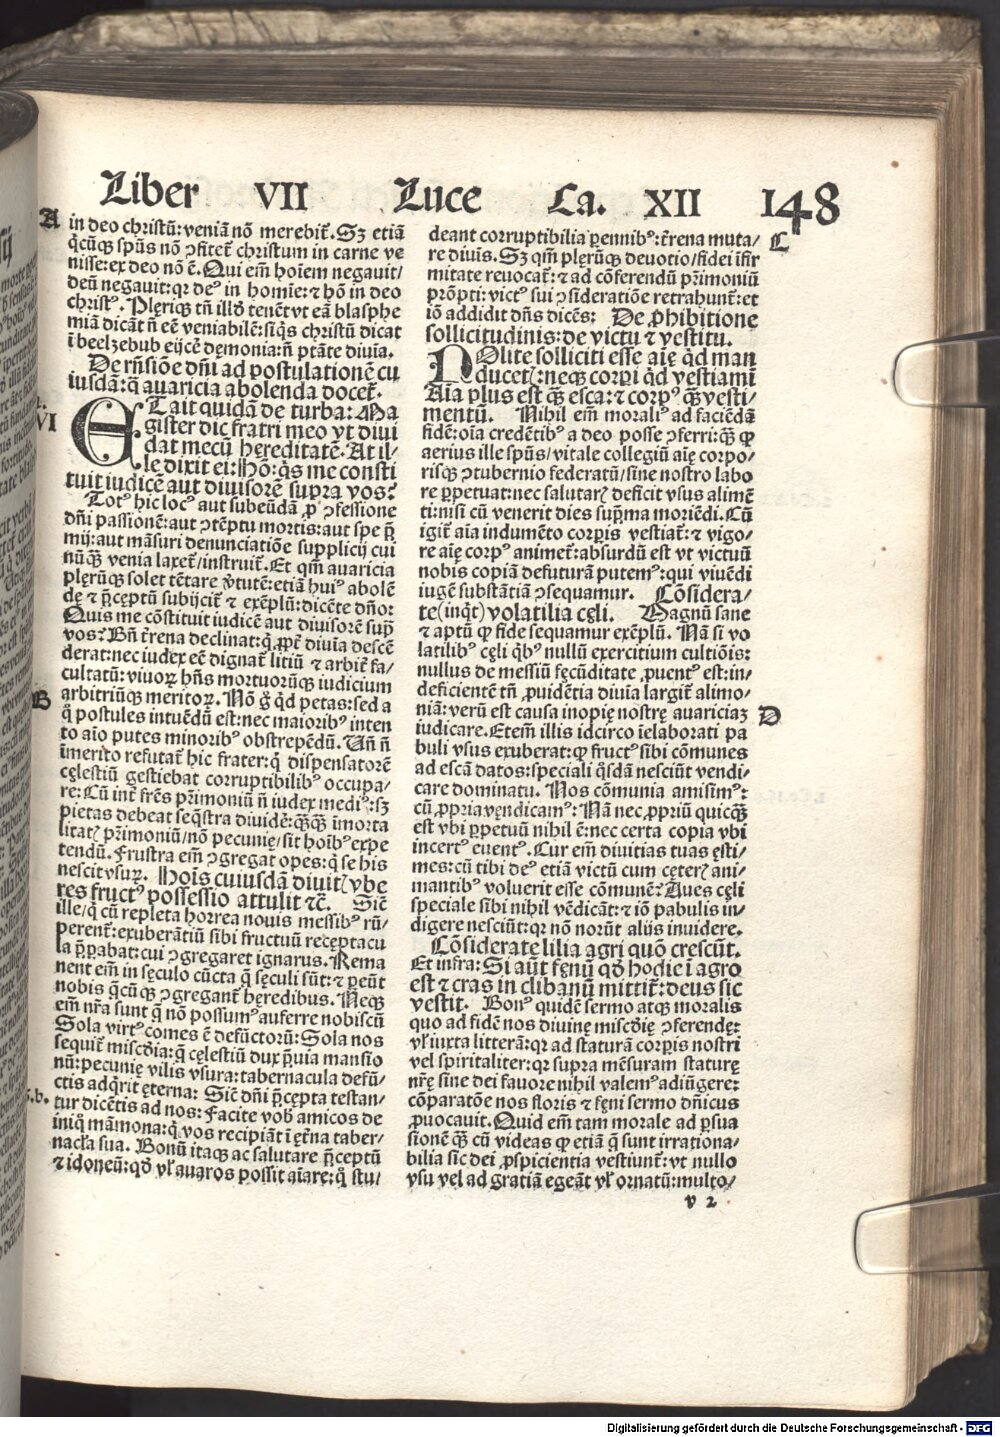 Liber VII Luce Ca. XII 148
A
in deo christū: veniā nō merebiť. Sȝ etiā
q̄cūqꝫ sp̄us nō ꝯfiteť christum in carne ve
nisse: ex deo nō ē. Qui em̄ hoīem negauit/
deū negauit: qꝛ deꝰ in homīe: ⁊ hō in deo
christꝰ. Pleriqꝫ tn̄ illd̄ tenēt vt eā blasphe
miā dicāt n̄ eē veniabilē: siq̄s christū dicat
ī beelzebub eijcē dęmonia: n̄ ptāte diuīa.
De rn̄siōe dn̄i ad postulationē cu
iusdā: q̄ auaricia abolenda doceť.
VI
ETait quidā de turba: Ma
gister dic fratri meo vt diui
dat mecū hęreditatē. At il⸗
le dixit ei: Hō: q̄s me consti
tuit iudicē aut diuisorē supra vos?
Totꝰ hic locꝰ aut subeūdā ꝓ ꝯfessione
dn̄i passionē: aut ꝯtēptu mortis: aut spe p̄
mij: aut māsuri denunciatiōe supplicij cui
nūqꝫ venia laxeť/instruiť. Et qm̄ auaricia
plęrūqꝫ solet tētare v̓tutē: etiā huiꝰ abolē
dę ⁊ p̄ceptū subijciť ⁊ exēplū: dicēte dn̄o:
Quis me cōstituit iudicē aut diuisorē sup̄
vos? Bn̄ t̓rena declinat: q̄ ꝓpť diuīa descē
derat: nec iudex eē dignať litiū ⁊ arbiť fa/
cultatū: viuoꝝ hn̄s mortuorūqꝫ iudicium
B
arbitriūqꝫ meritoꝝ. Nō g̊ qd̄ petas: sed a
q̊ postules intuēdū est: nec maioribꝰ inten
to aīo putes minoribꝰ obstrepēdū. Vn̄ n̄
īmerito refutať hic frater: q̄ dispensatorē
cęlestiū gestiebat corruptibilibꝰ occupa/
re: Cū inť frēs p̄rimoniū n̄ iudex mediꝰ: sȝ
pietas debeat seq̄stra diuidē: q̄ꝫq̄ꝫ īmorta
litať p̄rimoniū/nō pecunię/sit hoībꝰ expe
tendū. Frustra em̄ ꝯgregat opes: q̄ se his
nescit vsuꝝ. Hoīs cuiusdā diuitꝭ vbe
res fructꝰ possessio attulit ⁊c̄. Sic̄
ille/q̄ cū repleta horrea nouis messibꝰ rū/
perenť: exuberātiū sibi fructuū receptacu
la p̄ꝑabat: cui ꝯgregaret ignarus. Rema
nent em̄ in sęculo cūcta q̄ sęculi sūt: ⁊ ꝑeūt
nobis q̄cūqꝫ ꝯgreganť hęredibus. Neqꝫ
em̄ nr̄a sunt q̄ nō possumꝰ auferre nobiscū
Sola virtꝰ comes ē defūctorū: Sola nos
sequiť miscd̓ia: q̄ cęlestiū dux p̄uia mansio
nū: pecunię vilis vsura: tabernacula defū/
ctis adq̄rit ęterna: Sic̄ dn̄i p̄cepta testan/
tur dicētis ad nos: Facite vob̄ amicos de
iniq̊ māmona: q̄ vos recipiāt ī ęťna taber/
nacl̄a sua. Bonū itaqꝫ ac salutare p̄ceptū
⁊ idoneū: qd̄ vl̓ auaros possit aīare: q̊ stu/
deant corruptibilia ꝑennibꝰ: t̓rena muta/
re diuīs. Sȝ qm̄ plęrūqꝫ deuotio/fidei īfir
C
mitate reuocať: ⁊ ad cōferendū p̄rimoniū
prōpti: victꝰ sui ꝯsideratiōe retrahunť: et
iō addidit dn̄s dicēs: De ꝓhibitione
sollicitudinis: de victu ⁊ vestitu.
NOlite solliciti esse aię qd̄ man
ducetꝭ: neqꝫ corpi qd̄ vestiami
Aīa plus est q̄ꝫ esca: ⁊ corpꝰ q̄ꝫ vesti⸗
mentū. Nihil em̄ moraliꝰ ad faciēdā
fidē: oīa credētibꝰ a deo posse ꝯferri: q̄ꝫ ꝙ
aerius ille sp̄us/vitale collegiū aię corpo/
risqꝫ ꝯtubernio federatū/sine nostro labo
re ꝑpetuať: nec salutarꝭ deficit vsus alimē
ti: nisi cū venerit dies sup̄ma moriēdi. Cū
igiť aīa indumēto corꝑis vestiať: ⁊ vigo/
re aię corpꝰ animeť: absurdū est vt victuū
nobis copiā defuturā putemꝰ: qui viuēdi
iugē substātiā ꝯsequamur. Cōsidera/
te (inq̇t) volatilia cęli. Magnū sane
⁊ aptū ꝙ fide sequamur exēplū. Nā si vo
latilibꝰ cęli q̇bꝰ nullū exercitium cultiōis:
nullus de messiū fęcūditate ꝓuentꝰ est: in/
deficientē tn̄ ꝓuidētia diuīa largiť alimo/
D
niā: verū est causa inopię nostrę auariciaȝ
iudicare. Etem̄ illis idcirco īelaborati pa
buli vsus exuberat: ꝙ fructꝰ sibi cōmunes
ad escā datos: speciali q̊sdā nesciūt vendi/
care dominatu. Nos cōmunia amisimꝰ:
cū ꝓpria vęndicamꝰ: Nā nec ꝓpriū quicq̄ꝫ
est vbi ꝑpetuū nihil ē: nec certa copia vbi
incertꝰ euentꝰ. Cur em̄ diuitias tuas ęsti/
mes: cū tibi deꝰ etiā victū cum cęterꝭ ani/
mantibꝰ voluerit esse cōmunē? Aues cęli
speciale sibi nihil vēdicāt: ⁊ iō pabulis in/
digere nesciūt: qꝛ nō norūt aliis inuidere.
Cōsiderate lilia agri quō crescūt.
Et infra: Si aūt fęnū qd̄ hodie ī agro
est ⁊ cras in clibanū mittiť: deus sic
vestit. Bonꝰ quidē sermo atqꝫ moralis
quo ad fidē nos diuinę miscd̓ię ꝯferendę:
vl̓ iuxta litterā: qꝛ ad staturā corꝑis nostri
vel spiritaliter: qꝛ supra mēsuram staturę
nr̄ę sine dei fauore nihil valemꝰ adiūgere:
cōparatōe nos floris ⁊ fęni sermo dn̄icus
ꝓuocauit. Quid em̄ tam morale ad ꝑsua
sionē q̄ꝫ cū videas ꝙ etiā q̄ sunt irrationa/
bilia sic dei ꝓspicientia vestiunť: vt nullo
vsu vel ad gratiā egeāt vl̓ ornatū: multo/
v 2
Digitalisierung gefördert durch die Deutsche Forschungsgemeinschaft - DFG